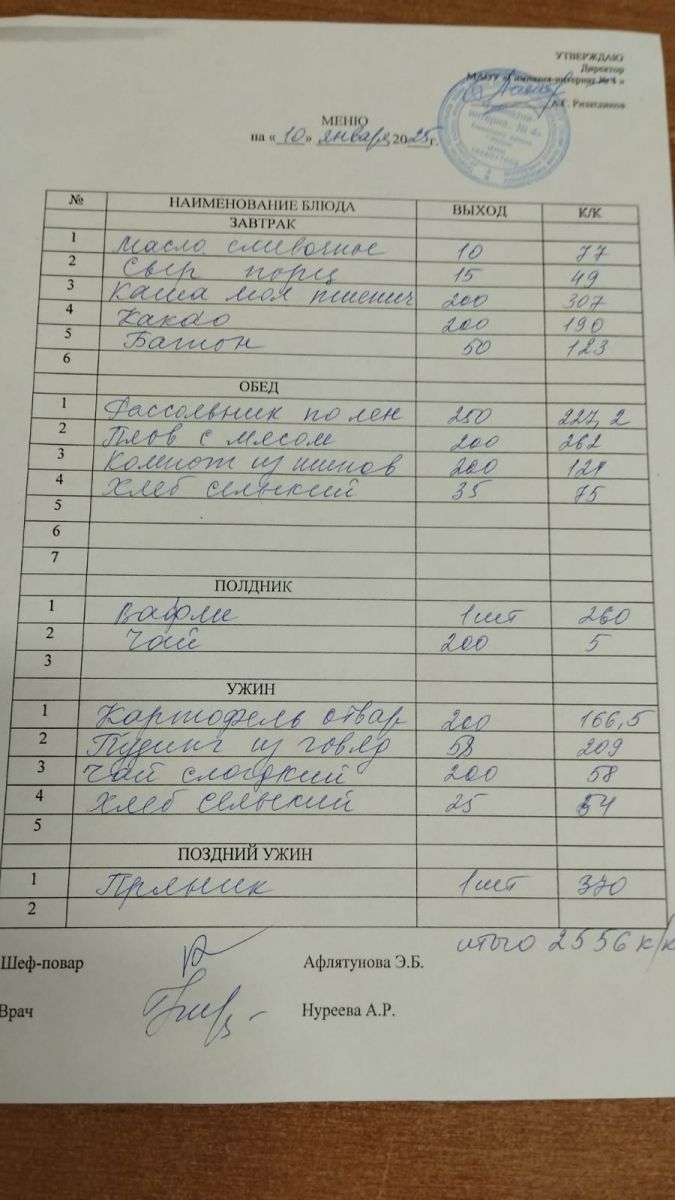 УТВЕРЖДАЮ
Директор
МАОУ «Гимназия-интернат № 4»
А.Г. Ризатдинов
МЕНЮ
на « 10 » января 2025г.
№ НАИМЕНОВАНИЕ БЛЮДА ВЫХОД К/К
ЗАВТРАК
1 Масло сливочное 10 77
2 Сыр порц 15 49
3 Каша мол пшенич 200 307
4 Какао 200 190
5 Батон 50 123
6
ОБЕД
1 Рассольник по лен 250 227,2
2 Плов с мясом 200 262
3 Компот из 200
4 Хлеб сельский 35 75
5
6
7
ПОЛДНИК
1 Вафли 1шт 260
2 Чай 200 5
3
УЖИН
1 Картофель отвар 200 166,5
2 Пудинг из говяд 58 209
3 Чай сладкий 200 58
4 Хлеб сельский 25 54
5
ПОЗДНИЙ УЖИН
1 Пряник 1шт 370
2
итого 2556 к/к
Шеф-повар Афлятунова Э.Б.
Врач Нуреева А.Р.